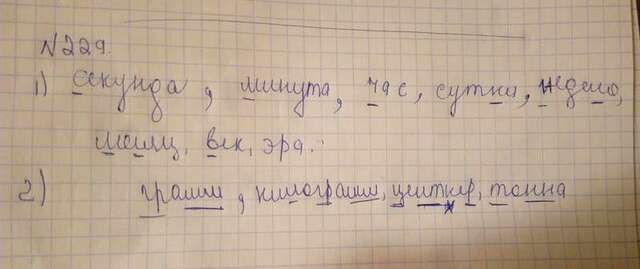 №229.
1) Секунда, минута, час, сутки, неделя,
месяц, век, эра.
2) грамм, килограмм, центнер, тонна